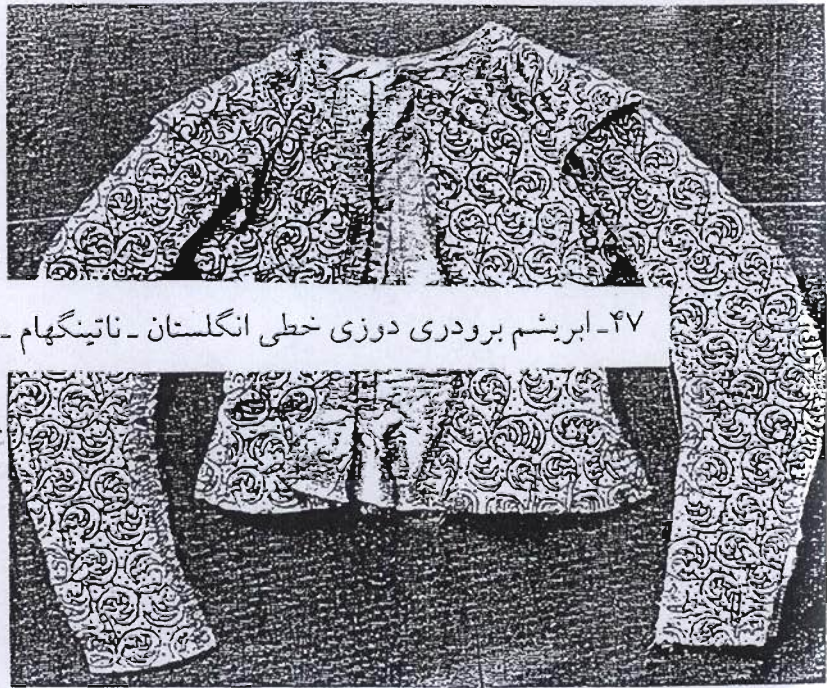 ۴۷ـ ابریشم برودری دوزی خطی انگلستان ـ ناتینگهام ـ